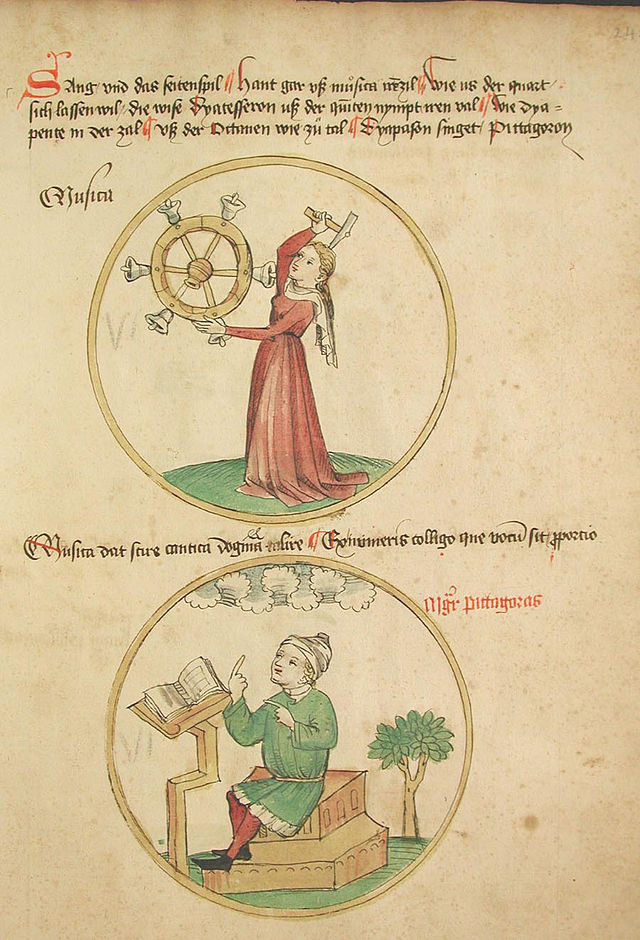 Sang vnd das seitenspil hant gar vß můsica zil Wie us der quart
sich lassen wil die wise Dyatesseron uß der quinten nympt iren val Wie dya=
pente in der zal vß der Octauen wie zů tol Dyapason singet Pittagoron
Musica
Musica dat scire cantica dogma Ex numeris colligo que vocum sit proportio
Mgr pittagoras